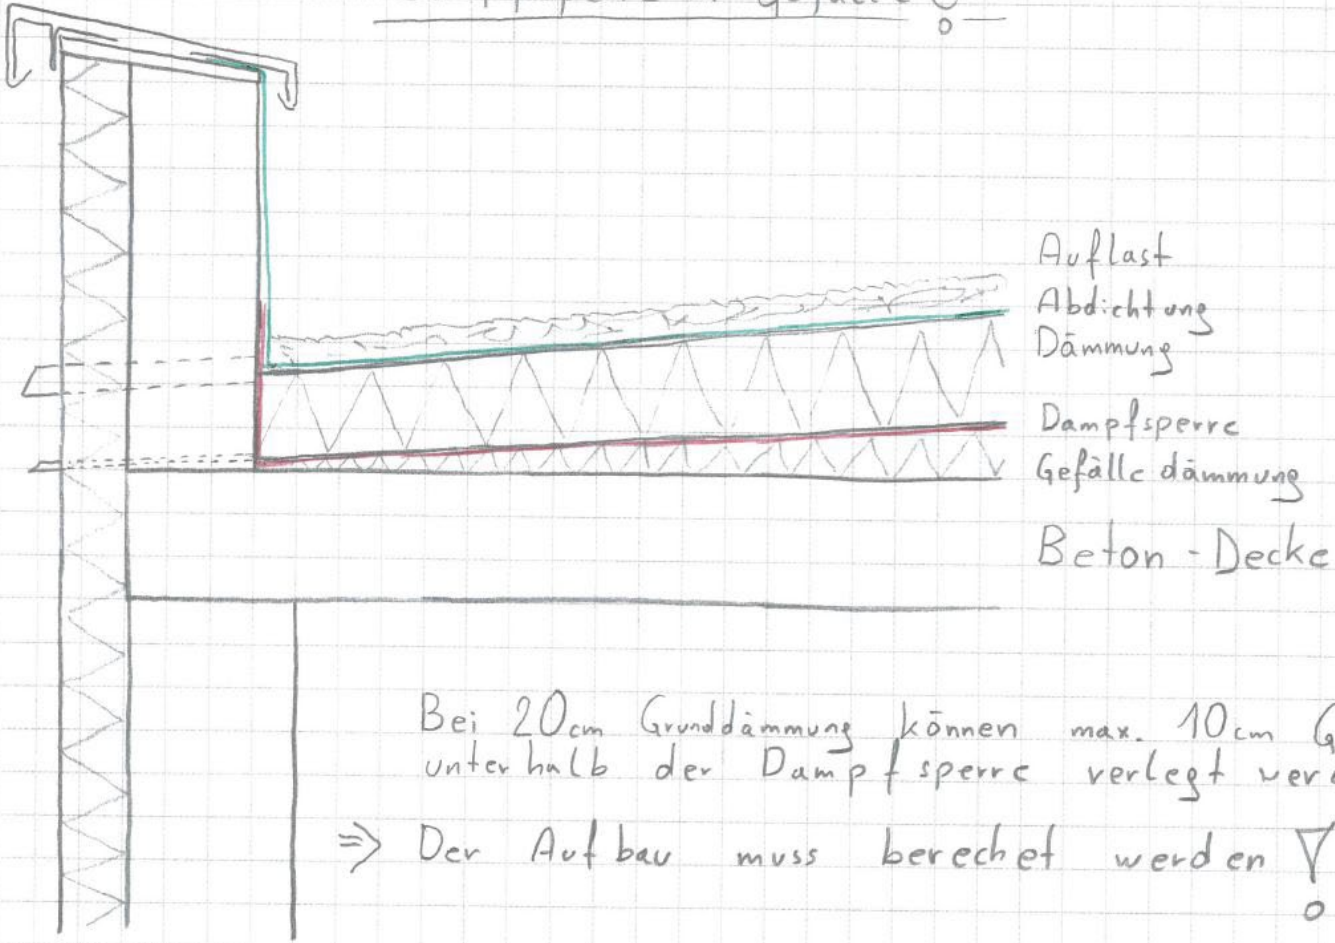 Auflast
Abdichtung
Dämmung
Dampfsperre
Gefälle dämmung
Beton - Decke
Bei 20cm Grunddämmung können max. 10cm
unterhalb der Dampfsperre verlegt
⇒ Der Aufbau muss berechet werden !